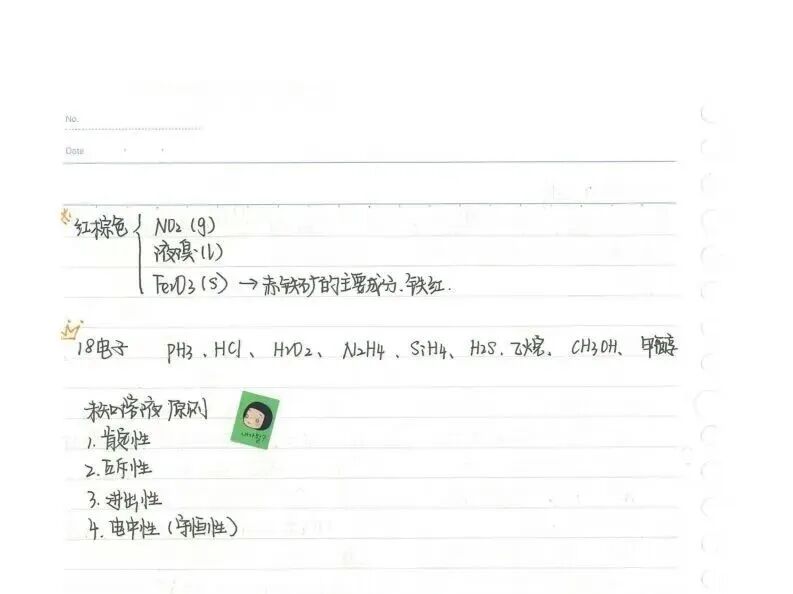 No.
Date
红棕色 { NO2 (g)
液溴 (l)
Fe2O3 (s) → 赤铁矿的主要成分. 铁红.
18电子 PH3、HCl、H2O2、N2H4、SiH4、H2S、乙烷、CH3OH、甲醇
未知溶液原则
1. 肯定性
2. 互斥性
3. 进出性
4. 电中性 (守恒性)